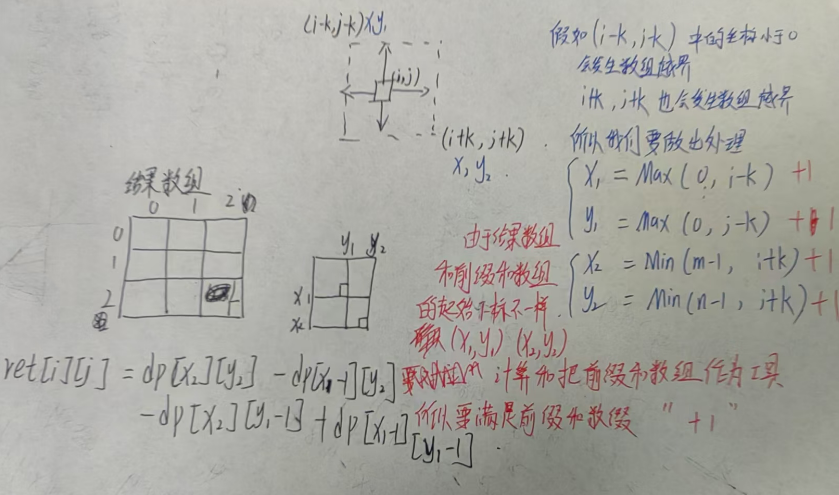 (i-k,j-k)x,y,
(i,j)
(i+k,j+k).
x,y₂.
假如(i-k,j-k)中的坐标小于0
会发生数组越界
i+k,j+k也会发生数组越界
所以我们要做出处理
x₁ = Max(0,i-k) +1
y₁ = Max(0,j-k) +1
x₂ = Min(m-1, i+k)+1
y₂ = Min(n-1, j+k)+1
结果数组
0 1 2
0
1
2
y₁ y₂
x₁
x₂
由于结果数组
和前缀和数组
的起始下标不一样.
(x₁,y₁) (x₂,y₂)
计算和把前缀和数组作为工具
所以要满足前缀和数缀 "+1"
ret[i][j] = dp[x₂][y₂] - dp[x₁-1][y₂]
- dp[x₂][y₁-1] + dp[x₁-1]
[y₁-1].